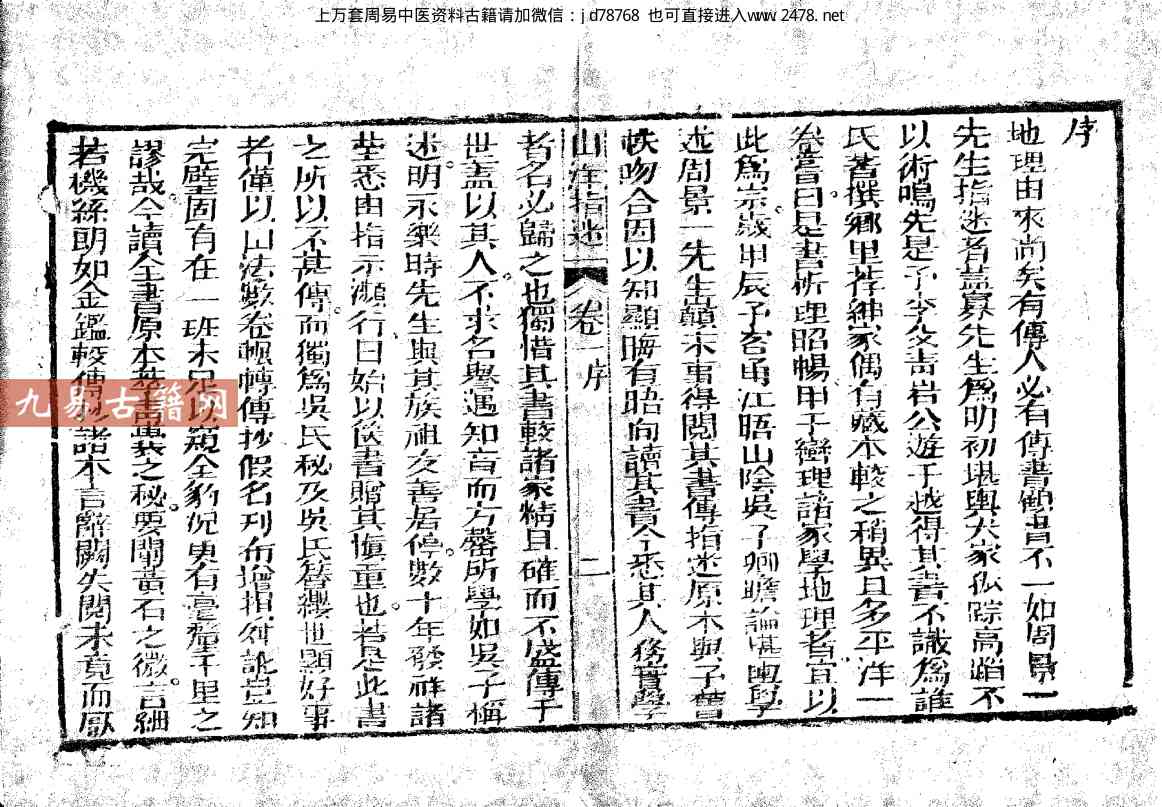 上万套周易中医资料古籍请加微信：jd78768 也可直接进入www.2478.net
序
地理由來尚矣有傳人必有傳書顧書不一如周景一
先生指迷者蓋寡先生爲明初堪輿大家孤踪高蹈不
以術鳴先是予李父青岩公遊于越得其書不識爲誰
氏舊撰鄉里荐紳家偶有藏本較之稍異且多平洋一
卷嘗曰是書析理昭暢甲于巒理諸家學地理者宜以
此爲宗歲甲辰予客甬江晤山陰吳子卿瞻論堪輿學
述周景一先生顛末事得閱其書傳指迷原本與予曾
帙吻合因以知顯晦有時向讀其書今悉其人務實學
山洋指迷 卷一序 二
者名必歸之也獨惜其書較諸家精且確而不盛傳于
世蓋以其人不求名譽遇知音而方罄所學如吳子稱
述明永樂時先生與其族祖友善居停數十年發祥諸
塋悉由指示瀕行日始以篋書贈其慎重也若是此書
之所以不甚傳而獨爲吳氏秘及吳氏簪纓世顯好事
者僅以山法數卷輾轉傳抄假名刋布增損舛訛豈知
完璧固有在一班未足以窺全豹况更有毫釐千里之
謬哉今讀全書原本 之秘要闡黃石之微言細
若機絲朗如金鑑較傳抄諸本言辭闕失閱未竟而厭
九易古籍网